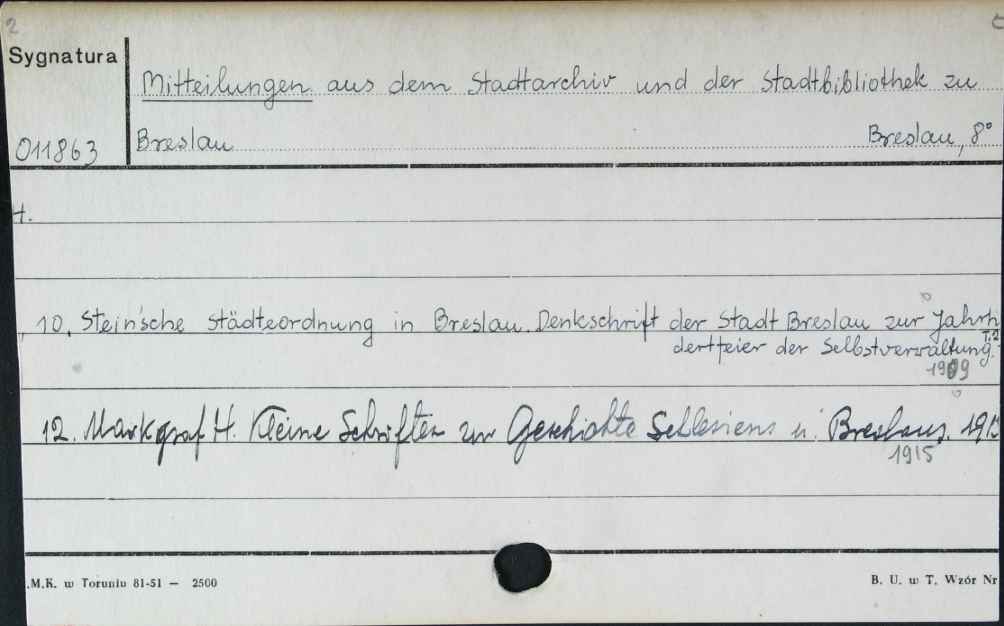 2
Sygnatura
Mitteilungen aus dem Stadtarchiv und der Stadtbibliothek zu
011863 Breslau Breslau, 8°
H.
10. Stein'sche Städteordnung in Breslau. Denkschrift der Stadt Breslau zur Jahrh
dertfeier der Selbstverwaltung. T. 2
1909
12. Markgraf H. Kleine Schriften zur Geschichte Schlesiens u. Breslaus. 1915
1915
.M.K. w Toruniu 81-51 — 2500 B. U. w T. Wzór Nr